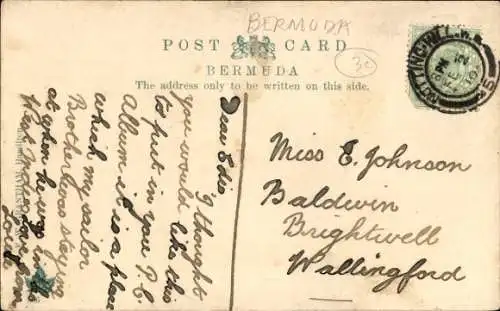 BERMUDA
POST CARD
BERMUDA
30
The address only to be written on this side.
NOTTING-HILL. W.
35
Dear Edie
I thought
you would like this
to put in your P.C.
Album it is a place
which my sailor
Brother was staying
at when he was in the
West Indies
love from
Miss E. Johnson
Baldwin
Brightwell
Wallingford